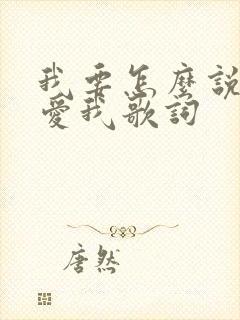 我要怎麽說
愛我歌詞
唐然